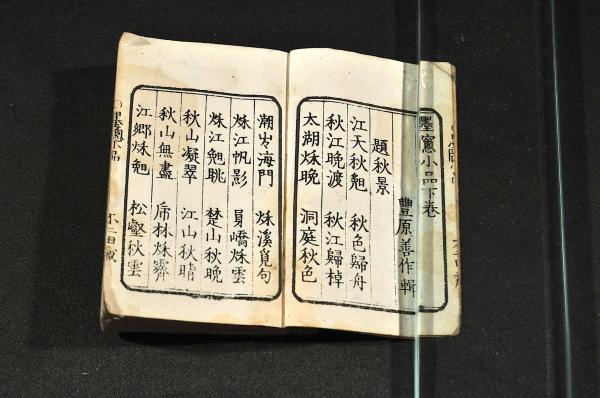 墨窻小品下卷
豐原善作輯
題秋景
江天秋 秋色歸舟
秋江晚渡 秋江歸棹
太湖秌晚 洞庭秋色
潮 海門 秌溪覓句
秌江帆影 員嶠秌雲
秌江 眺 楚山秋晚
秋山凝翠 江山秋晴
秋山無盡 林秌霽
江鄉秌 松壑秋雲
墨窻小品